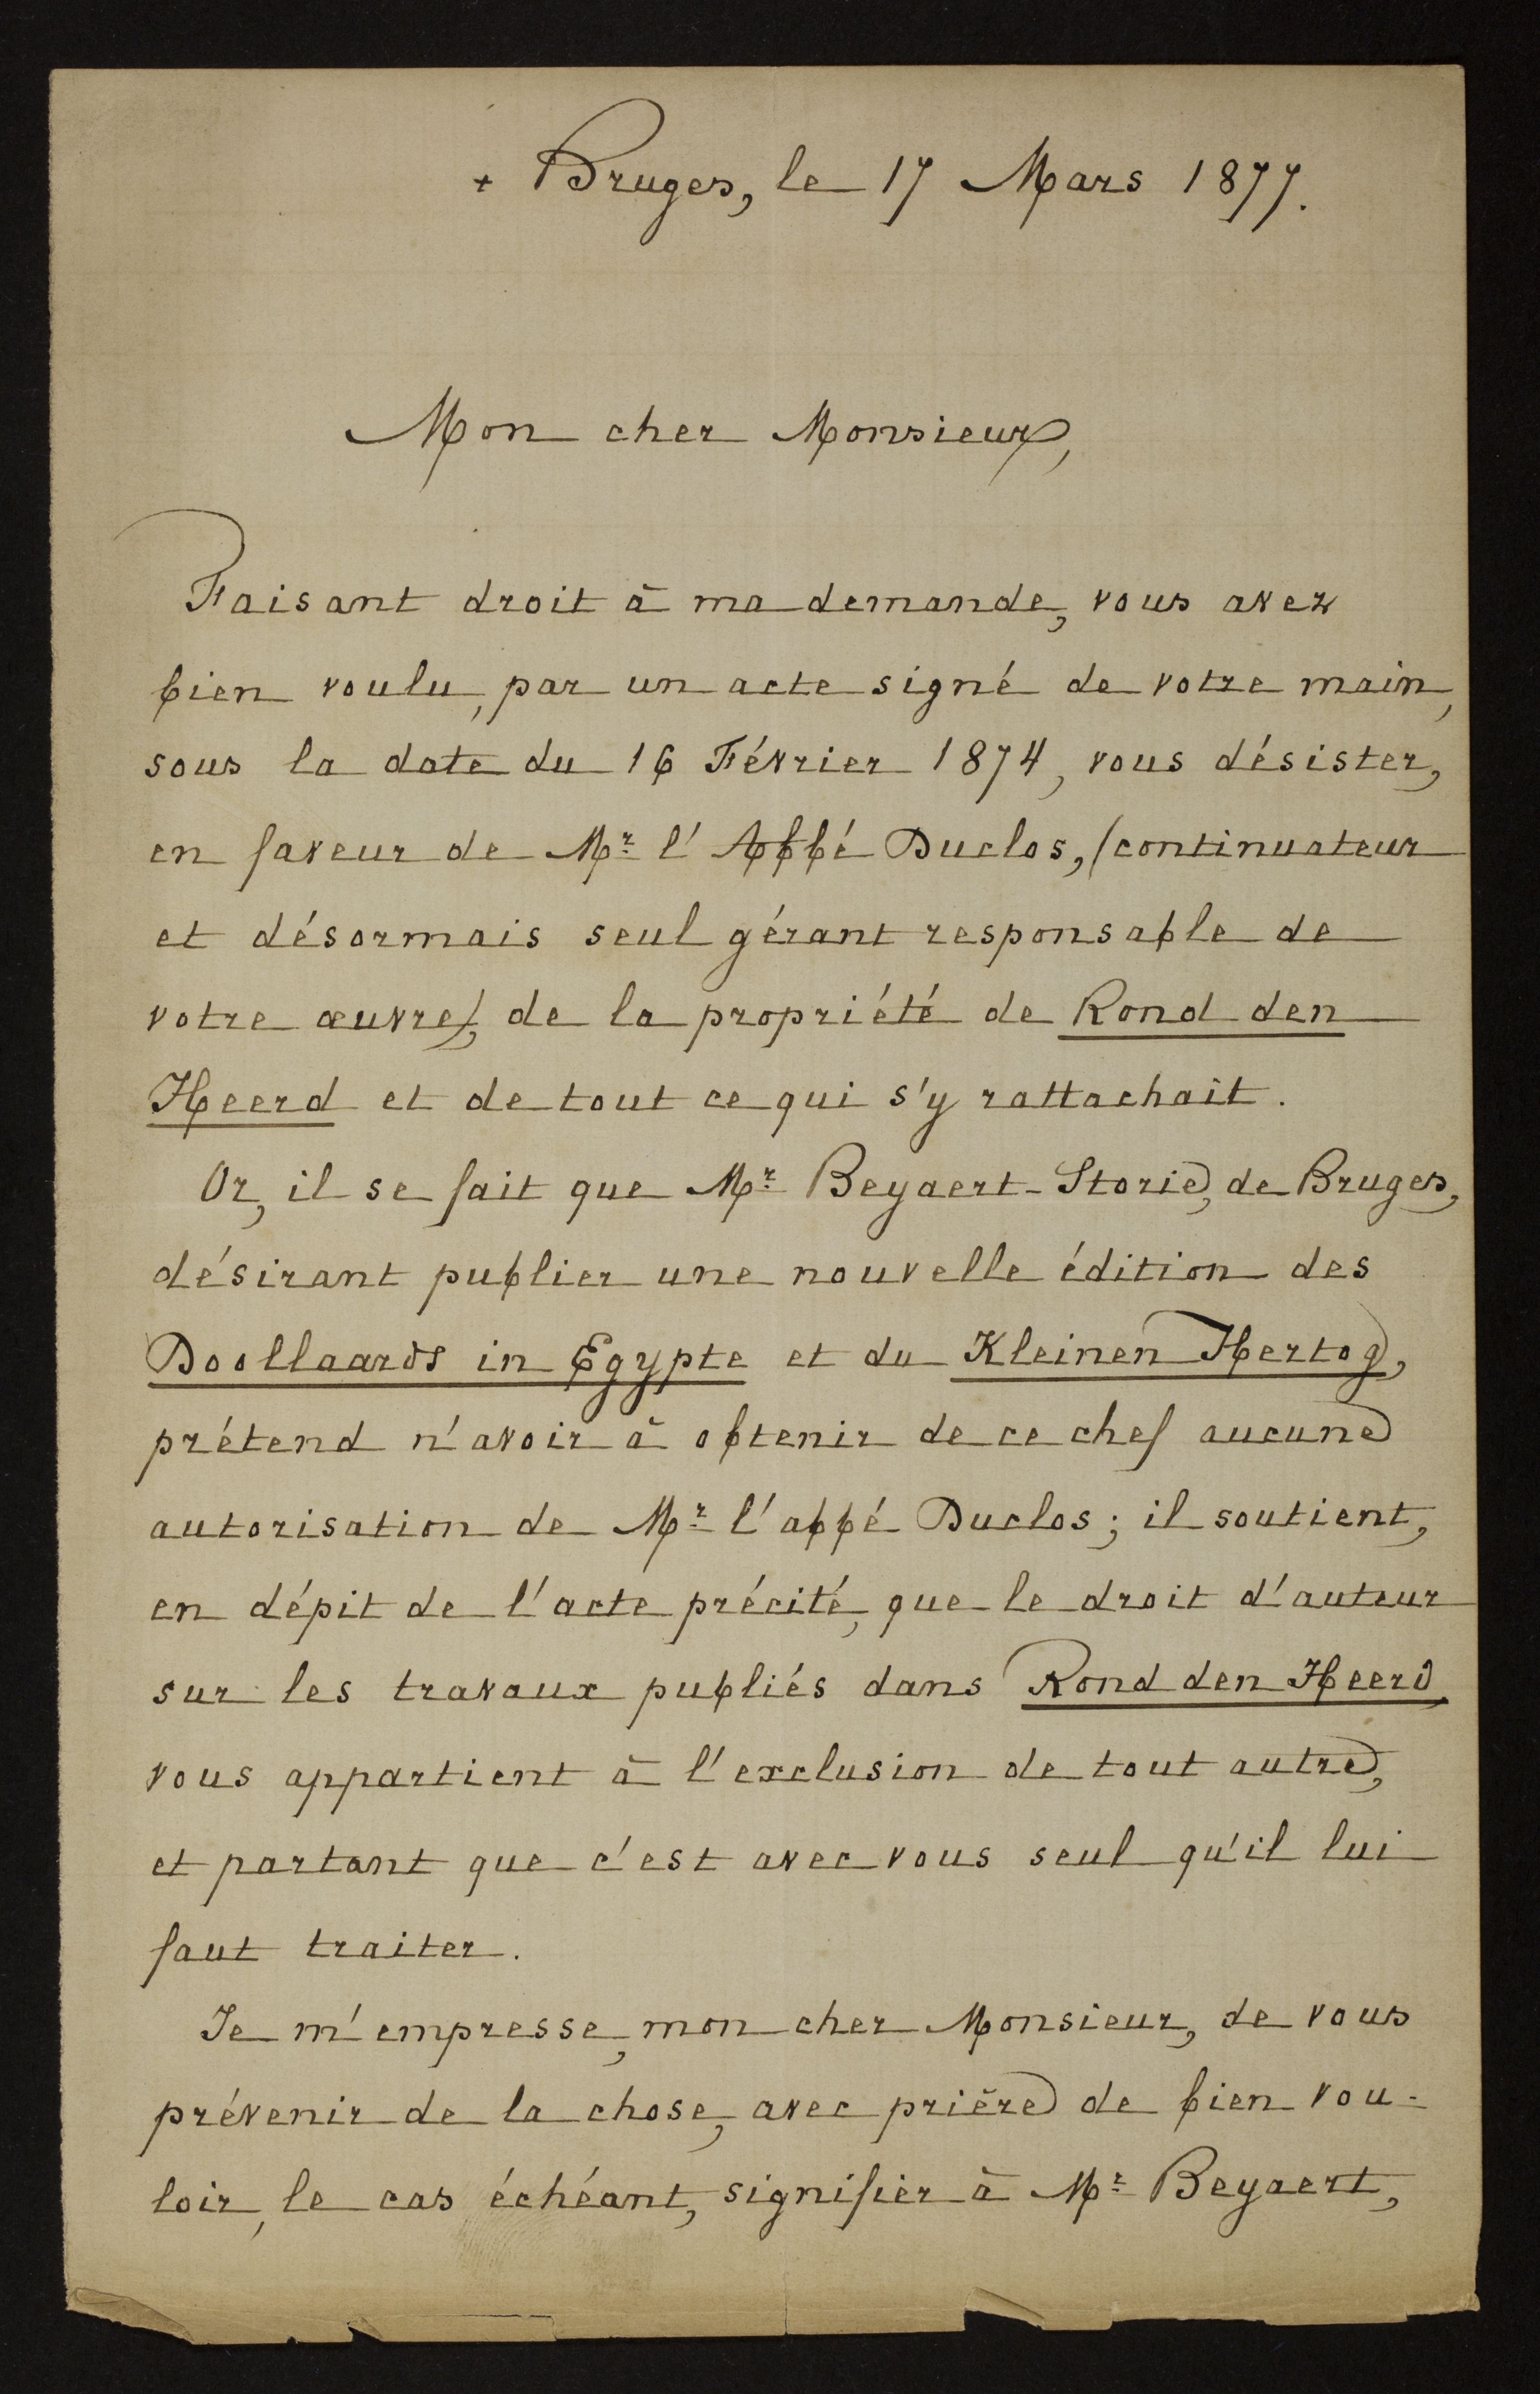 + Bruges, le 17 Mars 1877.
Mon cher Monsieur,
Faisant droit à ma demande, vous avez
bien voulu, par un acte signé de votre main,
sous la date du 16 Février 1874, vous désister,
en faveur de Mr l'Abbé Duclos, (continuateur
et désormais seul gérant responsable de
votre œuvre), de la propriété de Rond den
Heerd et de tout ce qui s'y rattachait.
Or, il se fait que Mr Beyaert-Storie, de Bruges,
désirant publier une nouvelle édition des
Doollaards in Egypte et du Kleinen Hertog,
prétend n'avoir à obtenir de ce chef aucune
autorisation de Mr l'abbé Duclos; il soutient,
en dépit de l'acte précité, que le droit d'auteur
sur les travaux publiés dans Rond den Heerd,
vous appartient à l'exclusion de tout autre,
et partant que c'est avec vous seul qu'il lui
faut traiter.
Je m'empresse, mon cher Monsieur, de vous
prévenir de la chose, avec prière de bien vou-
loir, le cas échéant, signifier à Mr Beyaert,